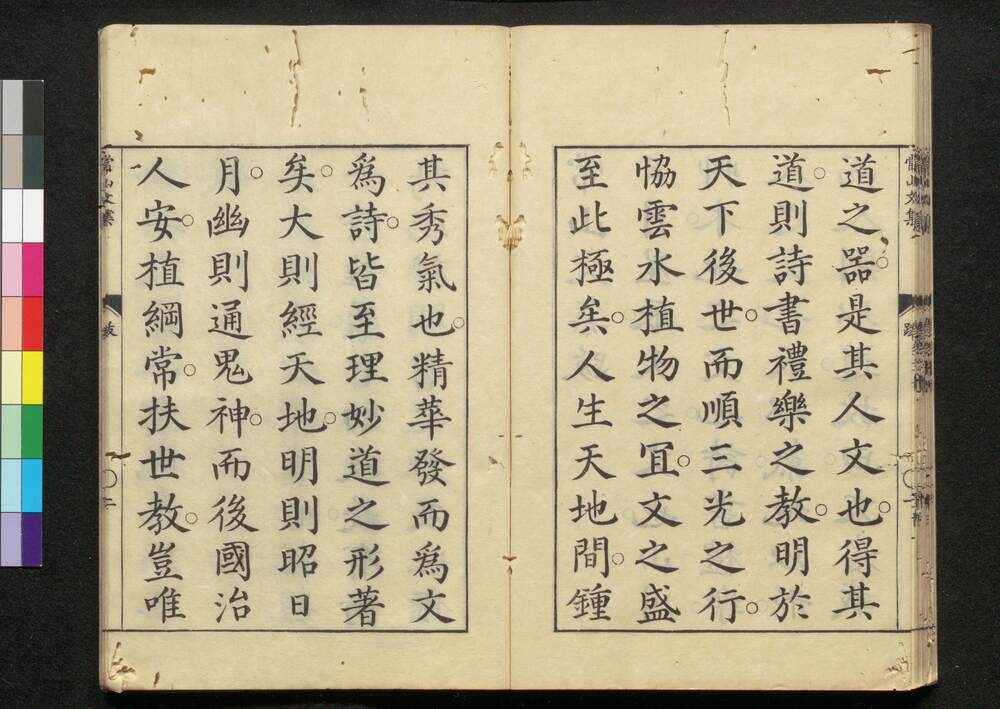 道之器是其人文也得其
道則詩書禮樂之教明於
天下後世而順三光之行
恊雲水植物之冝文之盛
至此極矣人生天地間鍾
其秀氣也精華發而爲文
爲詩皆至理妙道之形著
矣大則經天地明則昭日
月幽則通鬼神而後國治
人安植綱常扶世教豈唯